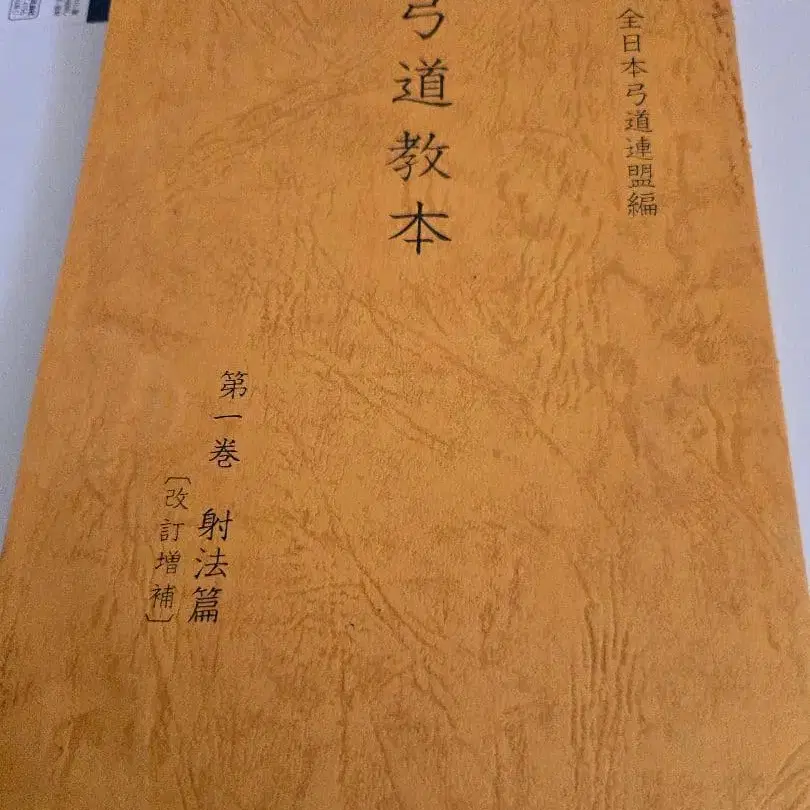 全日本弓道連盟編
弓道教本
第一巻 射法篇
〔改訂増補〕